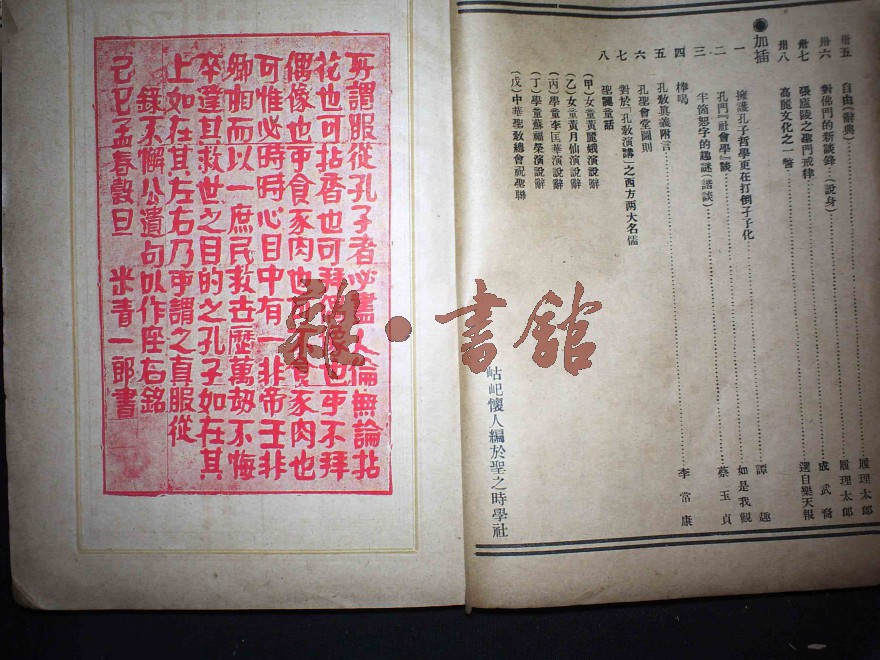 卅五 自由(辭典)……履理太郎
卅六 對佛門的新談鋒(說身)……履理太郎
卅七 張盧陵之聖門戒律……成武裔
卅八 高麗文化之一瞥……選自樂天報
●加插
一 擁護孔子哲學更在打倒孑孑化……譚趣
二 孔門『社會學』談……如是我觀
三 半箇恕字的趣謎(諧談)……蔡玉貞
四 棒喝……李常康
五 孔教真義附言
六 孔聖會堂圖則
七 對於「孔教演講」之西方兩大名儒
八 聖誕童話
(甲)女童黃麗娥演說辭
(乙)女童黃月仙演說辭
(丙)學童李匡華演說辭
(丁)學童蘇福榮演說辭
(戊)中華聖教總會祝聖聯
岵屺懷人編於聖之時學社
所謂服從孔子者必盡人倫無論拈
花也可拈香也可拜偶像也可不拜
偶像也可食豕肉也可不食豕肉也
可惟必時時心目中有一非帝王非
卿相而以一庶民救世歷萬劫不悔
卒達其救世之目的之孔子如在其
上如在其左右乃所謂之真服從
錄不懈公潰句以作座右銘
己巳孟春穀旦 米青一郎書
雜·書館